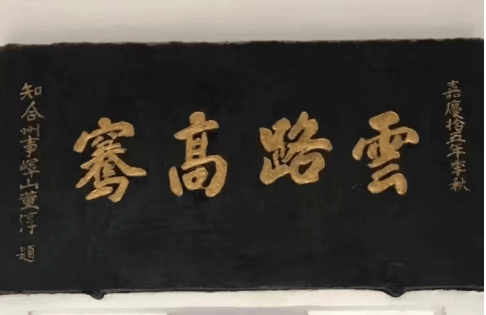 嘉慶拾五年季秋
雲路高騫
知合州事崞山董淳題